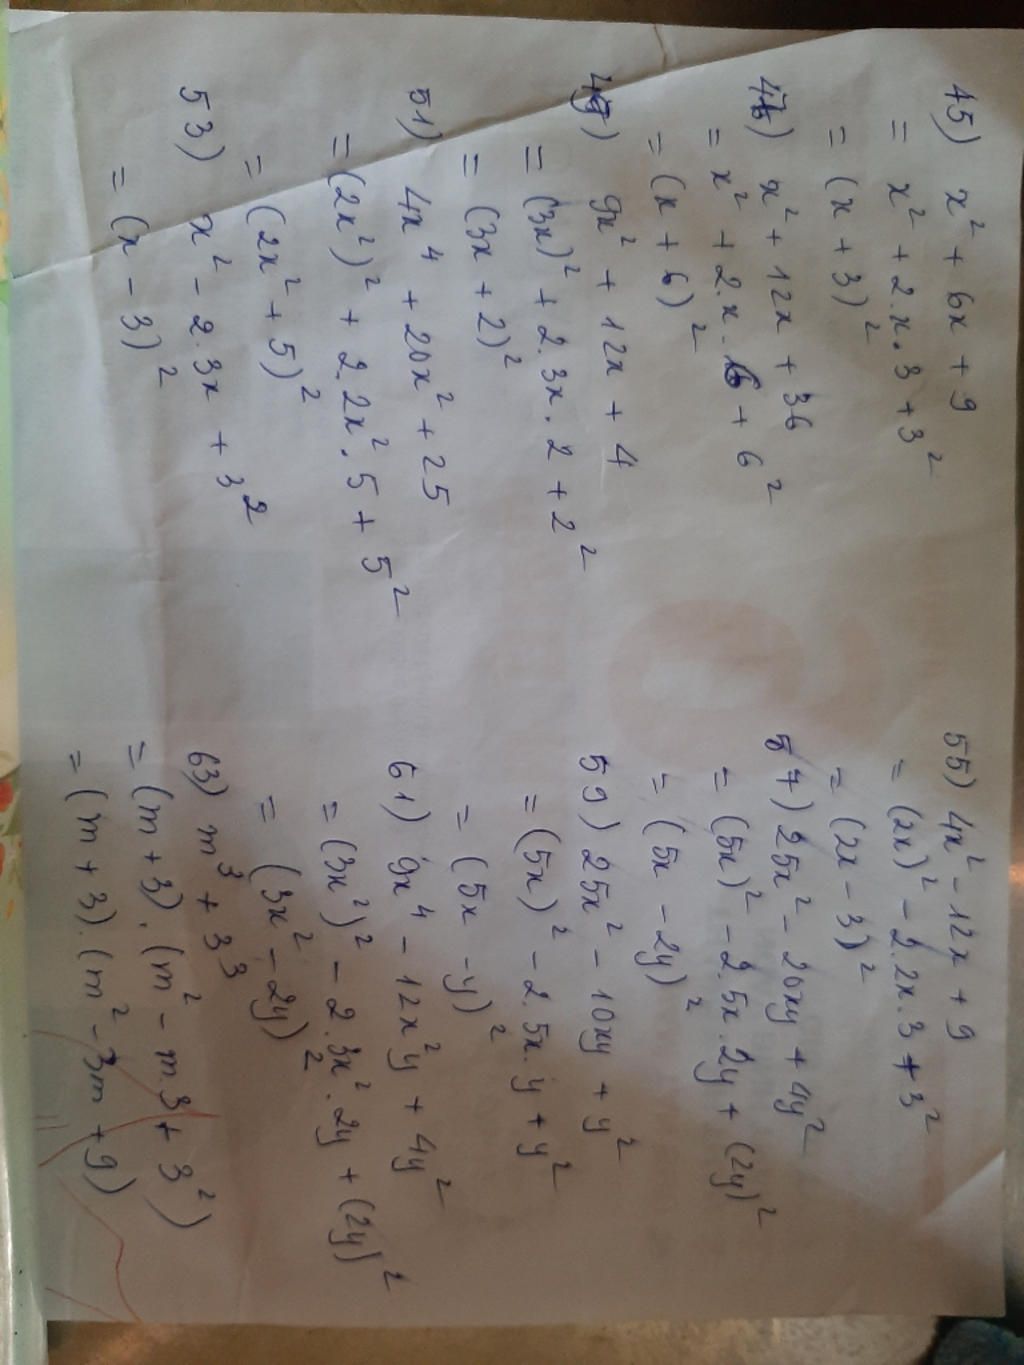 45) x² + 6x + 9
= x² + 2.x.3 + 3²
= (x + 3)²
47) x² + 12x + 36
= x² + 2.x.6 + 6²
= (x + 6)²
49) 9x² + 12x + 4
= (3x)² + 2.3x.2 + 2²
= (3x + 2)²
51) 4x⁴ + 20x² + 25
= (2x²)² + 2.2x².5 + 5²
= (2x² + 5)²
53) x² - 2.3x + 3²
= (x - 3)²
55) 4x² - 12x + 9
= (2x)² - 2.2x.3 + 3²
= (2x - 3)²
57) 25x² - 20xy + 4y²
= (5x)² - 2.5x.2y + (2y)²
= (5x - 2y)²
59) 25x² - 10xy + y²
= (5x)² - 2.5x.y + y²
= (5x - y)²
61) 9x⁴ - 12x²y + 4y²
= (3x²)² - 2.3x².2y + (2y)²
= (3x² - 2y)²
63) m³ + 3³
= (m + 3).(m² - m.3 + 3²)
= (m + 3).(m² - 3m + 9)